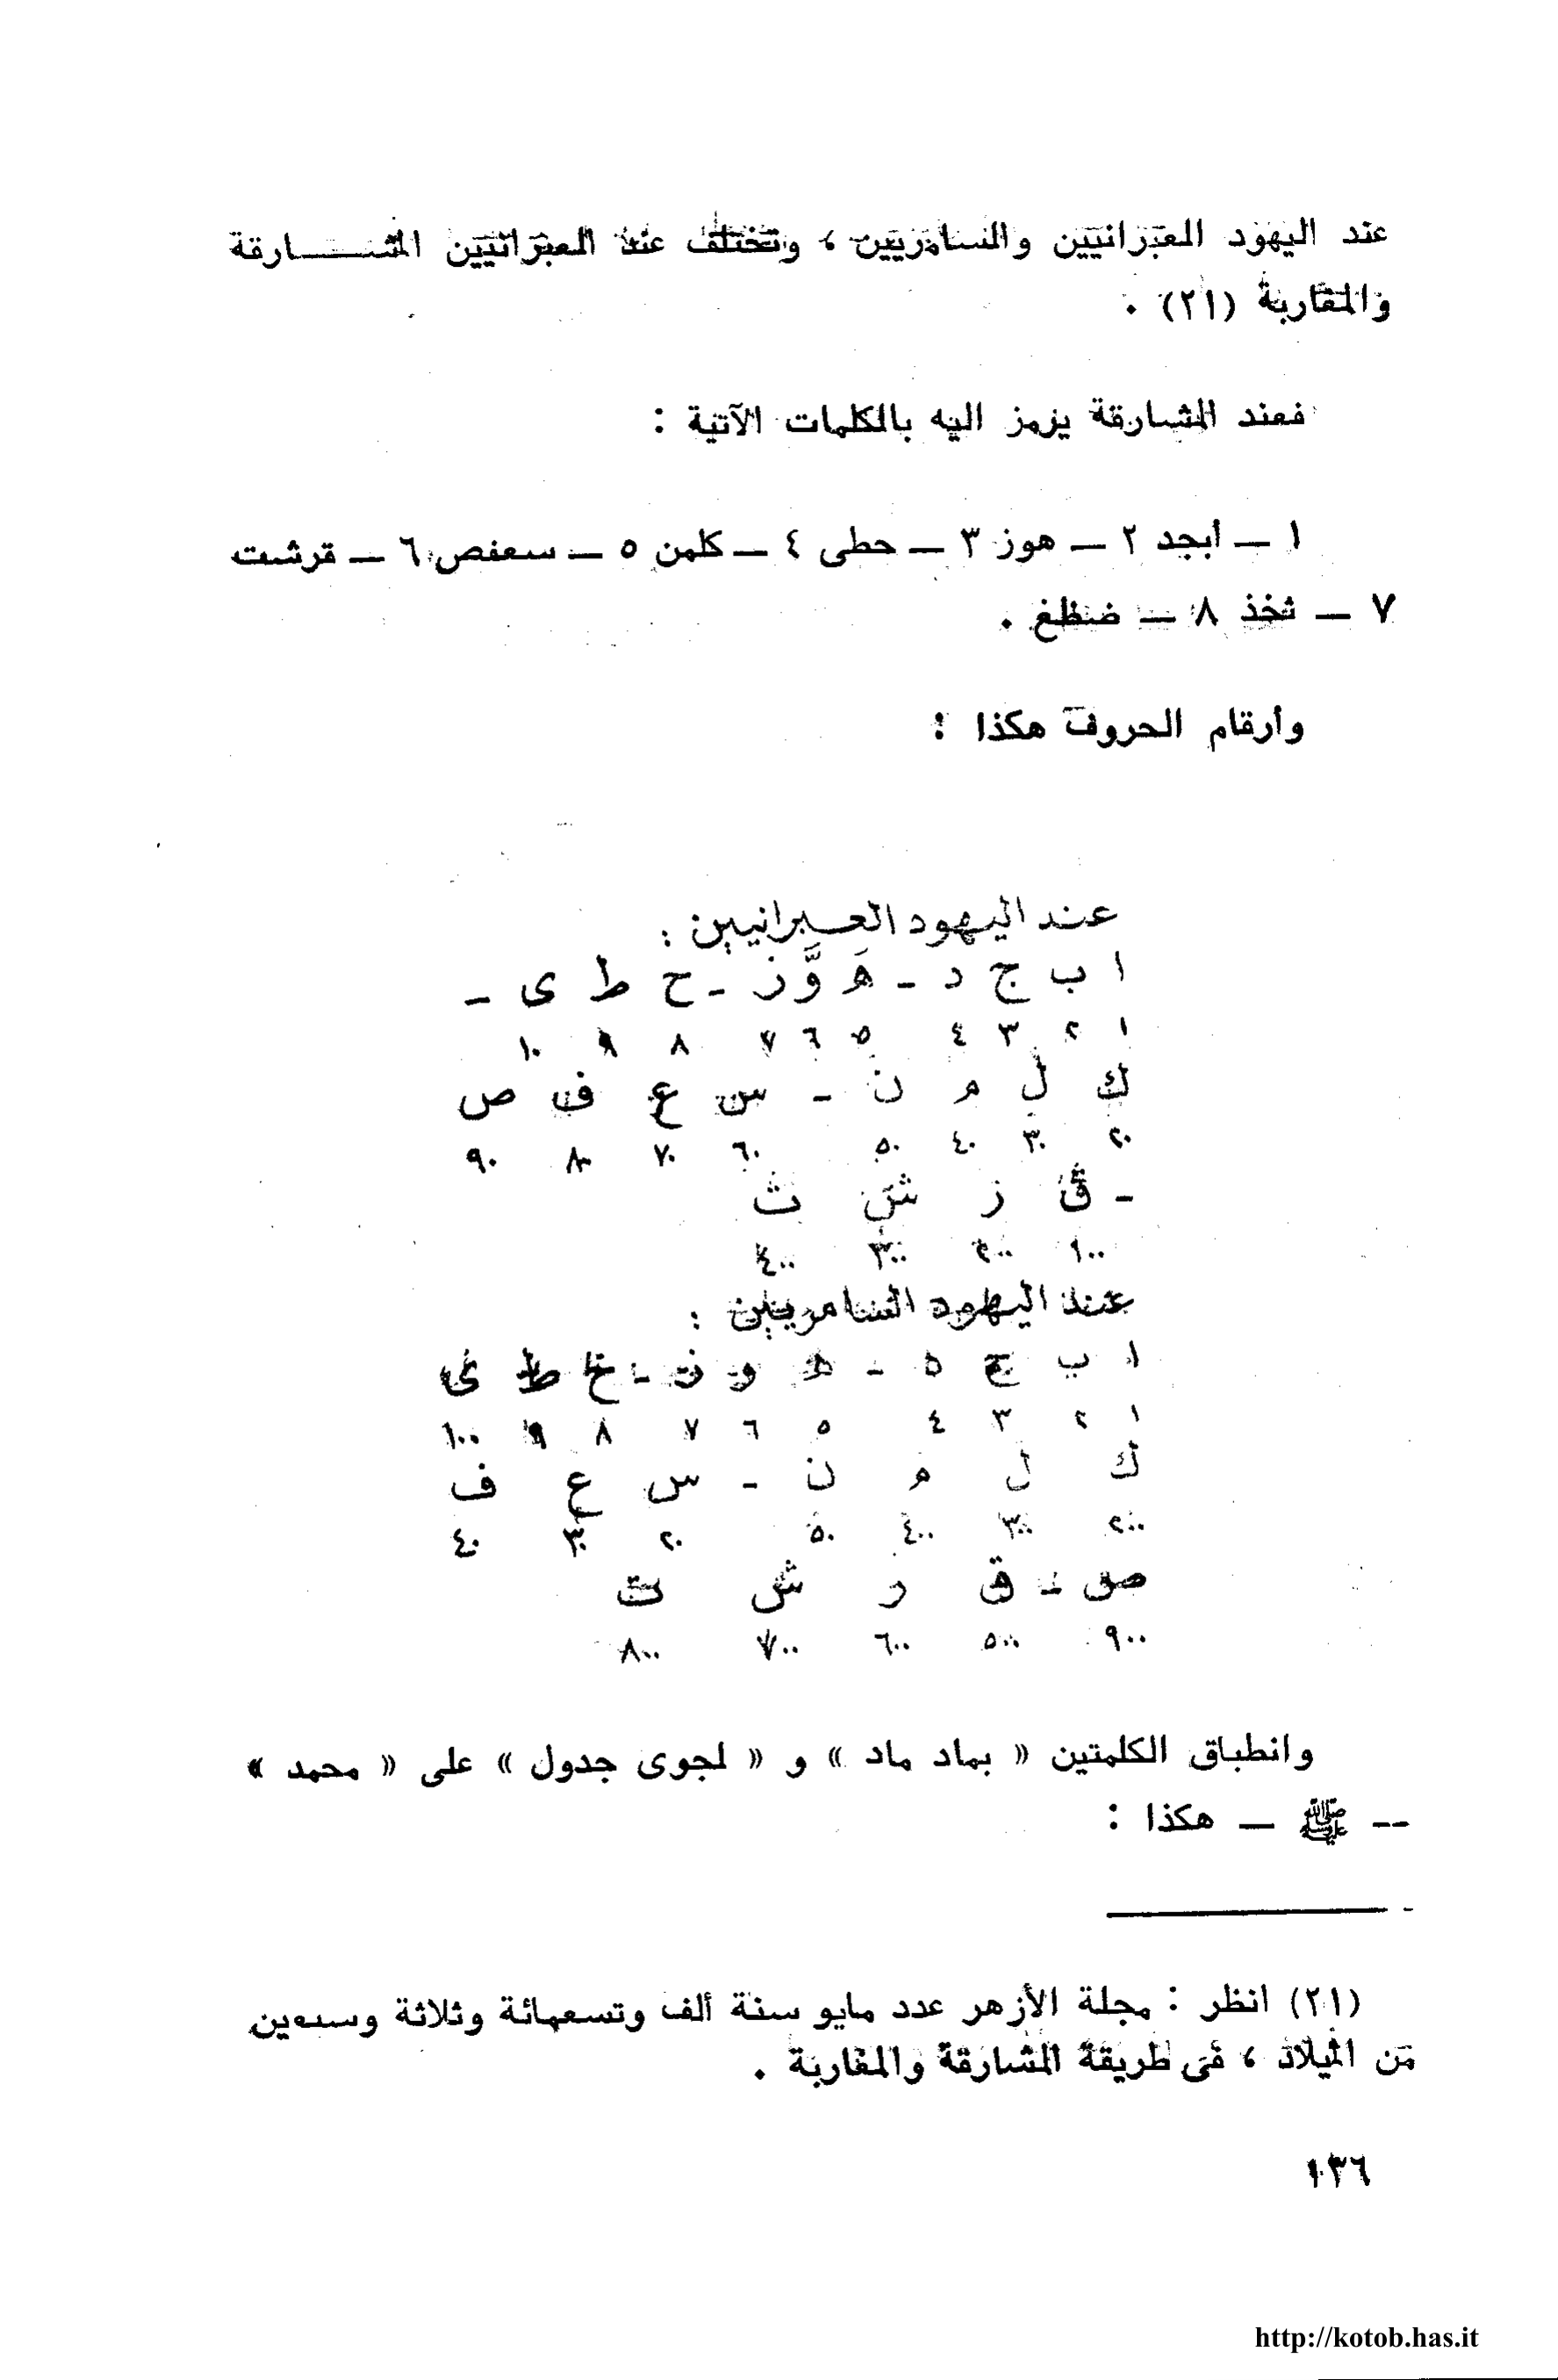 عند اليهود العبرانيين والسامريين ، وتختلف عند العبرانيين المشارقة
والمغاربة (٢١) .
فعند المشارقة يرمز اليه بالكلمات الآتية :
١ — أبجد ٢ — هوز ٣ — حطى ٤ — كلمن ٥ — سعفص ٦ — قرشت
٧ — ثخذ ٨ — ضظغ .
وأرقام الحروف هكذا :
عند اليهود العبرانيين :
ا ب ج د - هَ وَّ ز - ح ط ى -
١ ٢ ٣ ٤ ٥ ٦ ٧ ٨ ٩ ١٠
ك ل م ن - س ع ف ص
٢٠ ٣٠ ٤٠ ٥٠ ٦٠ ٧٠ ٨٠ ٩٠
- ق ر ش ت
١٠٠ ٢٠٠ ٣٠٠ ٤٠٠
عند اليهود السامريين :
ا ب ج د - ه و ز - ح ط ى
١ ٢ ٣ ٤ ٥ ٦ ٧ ٨ ٩ ١٠٠
ك ل م ن - س ع ف
٢٠٠ ٣٠٠ ٤٠٠ ٥٠ ٢٠ ٣٠ ٤٠
ص - ق ر ش ت
٩٠٠ ٥٠٠ ٦٠٠ ٧٠٠ ٨٠٠
وانطباق الكلمتين « بماد ماد » و « لجوى جدول » على « محمد »
-- ﷺ — هكذا :
(٢١) انظر : مجلة الأزهر عدد مايو سنة ألف وتسعمائة وثلاثة وسبعين
من الميلاد ، فى طريقة المشارقة والمغاربة .
١٣٦
http://kotob.has.it